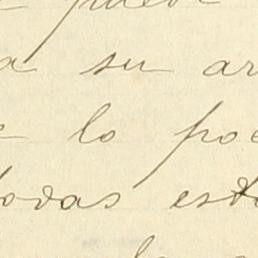 puede
a su ar
e lo poe
todas est